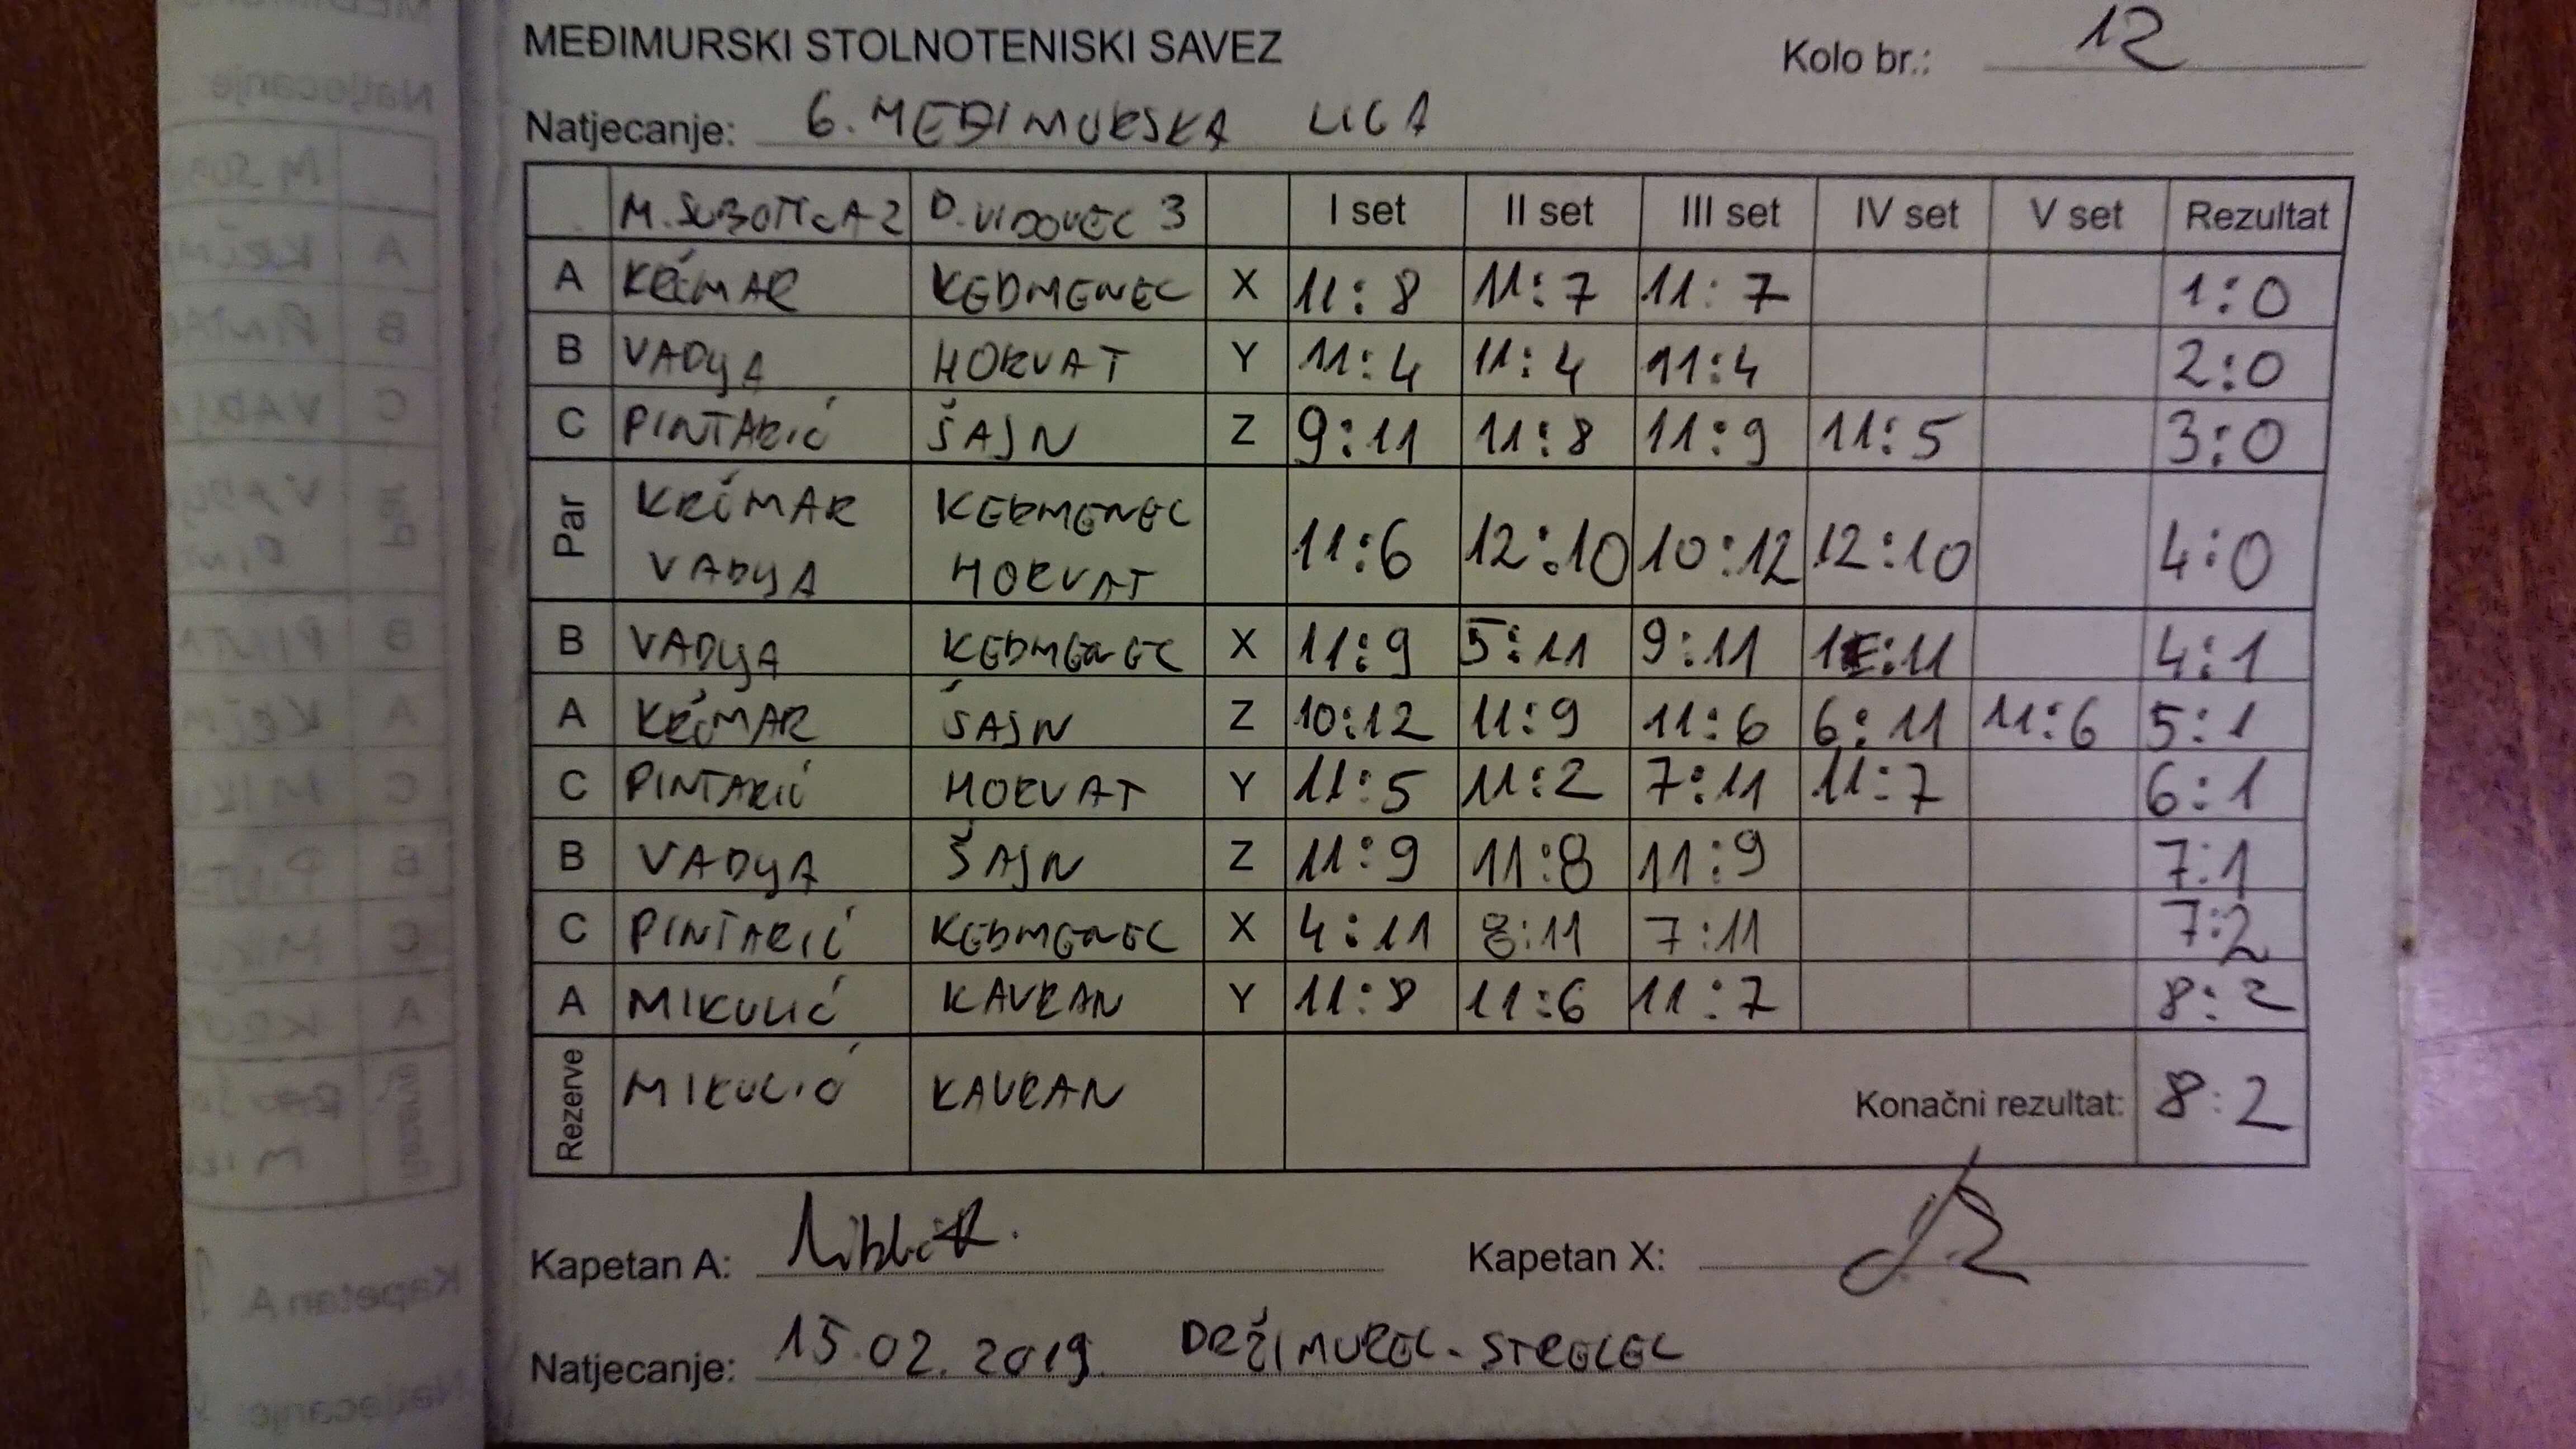 MEĐIMURSKI STOLNOTENISKI SAVEZ Kolo br.: 12
Natjecanje: 6. MEĐIMURSKA LIGA
M. SUBOTICA 2 D. VIDOVEC 3 I set II set III set IV set V set Rezultat
A KRČMAR KEDMENEC X 11:8 11:7 11:7 1:0
B VADLJA HORVAT Y 11:4 11:4 11:4 2:0
C PINTARIĆ ŠAJN Z 9:11 11:8 11:9 11:5 3:0
Par KRČMAR VADLJA KEDMENEC HORVAT 11:6 12:10 10:12 12:10 4:0
B VADLJA KEDMENEC X 11:9 5:11 9:11 :11 4:1
A KRČMAR ŠAJN Z 10:12 11:9 11:6 6:11 11:6 5:1
C PINTARIĆ HORVAT Y 11:5 11:2 7:11 11:7 6:1
B VADLJA ŠAJN Z 11:9 11:8 11:9 7:1
C PINTARIĆ KEDMENEC X 4:11 8:11 7:11 7:2
A MIKULIĆ KAVRAN Y 11:8 11:6 11:7 8:2
Rezerve MIKULIĆ KAVRAN Konačni rezultat: 8:2
Kapetan A: Kapetan X:
Natjecanje: 15.02.2019. DRŽIMUREC-STRELEC